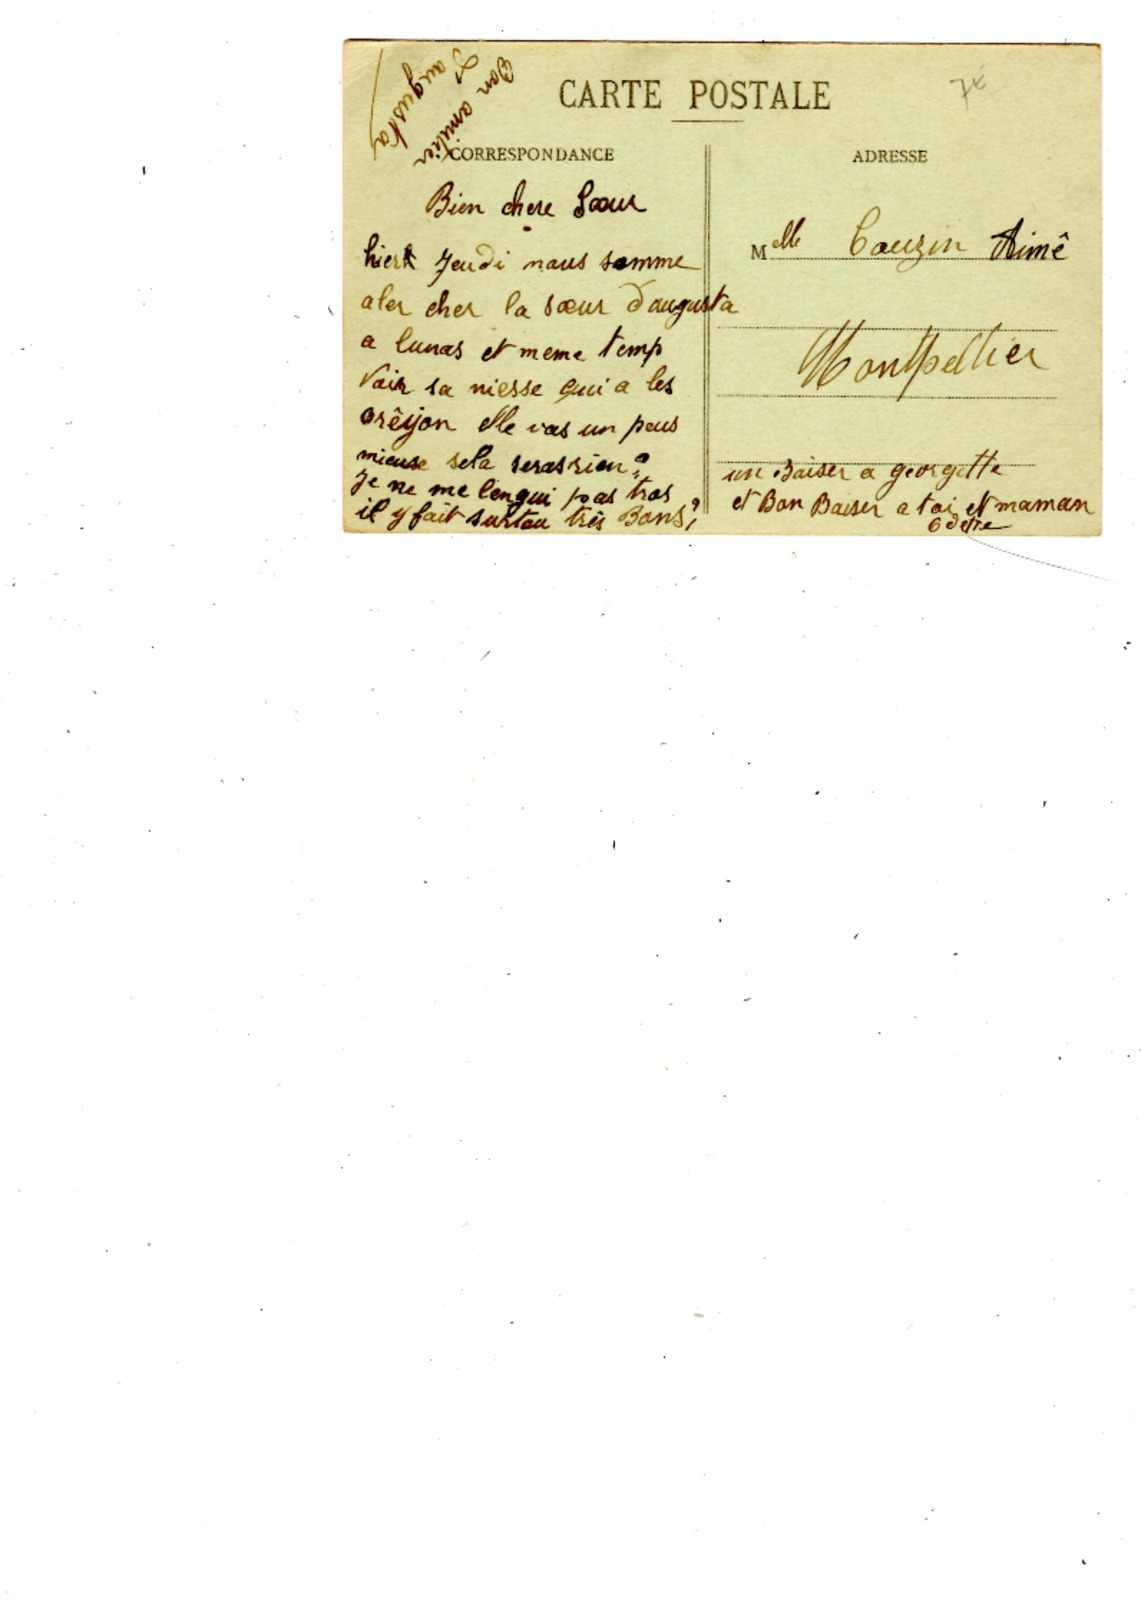 CARTE POSTALE
7€
CORRESPONDANCE
ADRESSE
Bon amitier
D'augusta
Bien chere Sœur
hier Jeudi nous somme
aler cher la sœur d'augusta
a lunas et meme temp
Voir sa niesse qui a les
orêijon elle vas un peus
mieuse sela seras rien
Je ne me lengui pas tros
il y fait surtou très Bons
Melle Couzin Aimê
Montpellier
un Baiser a georgette
et Bon Baiser a toi et maman